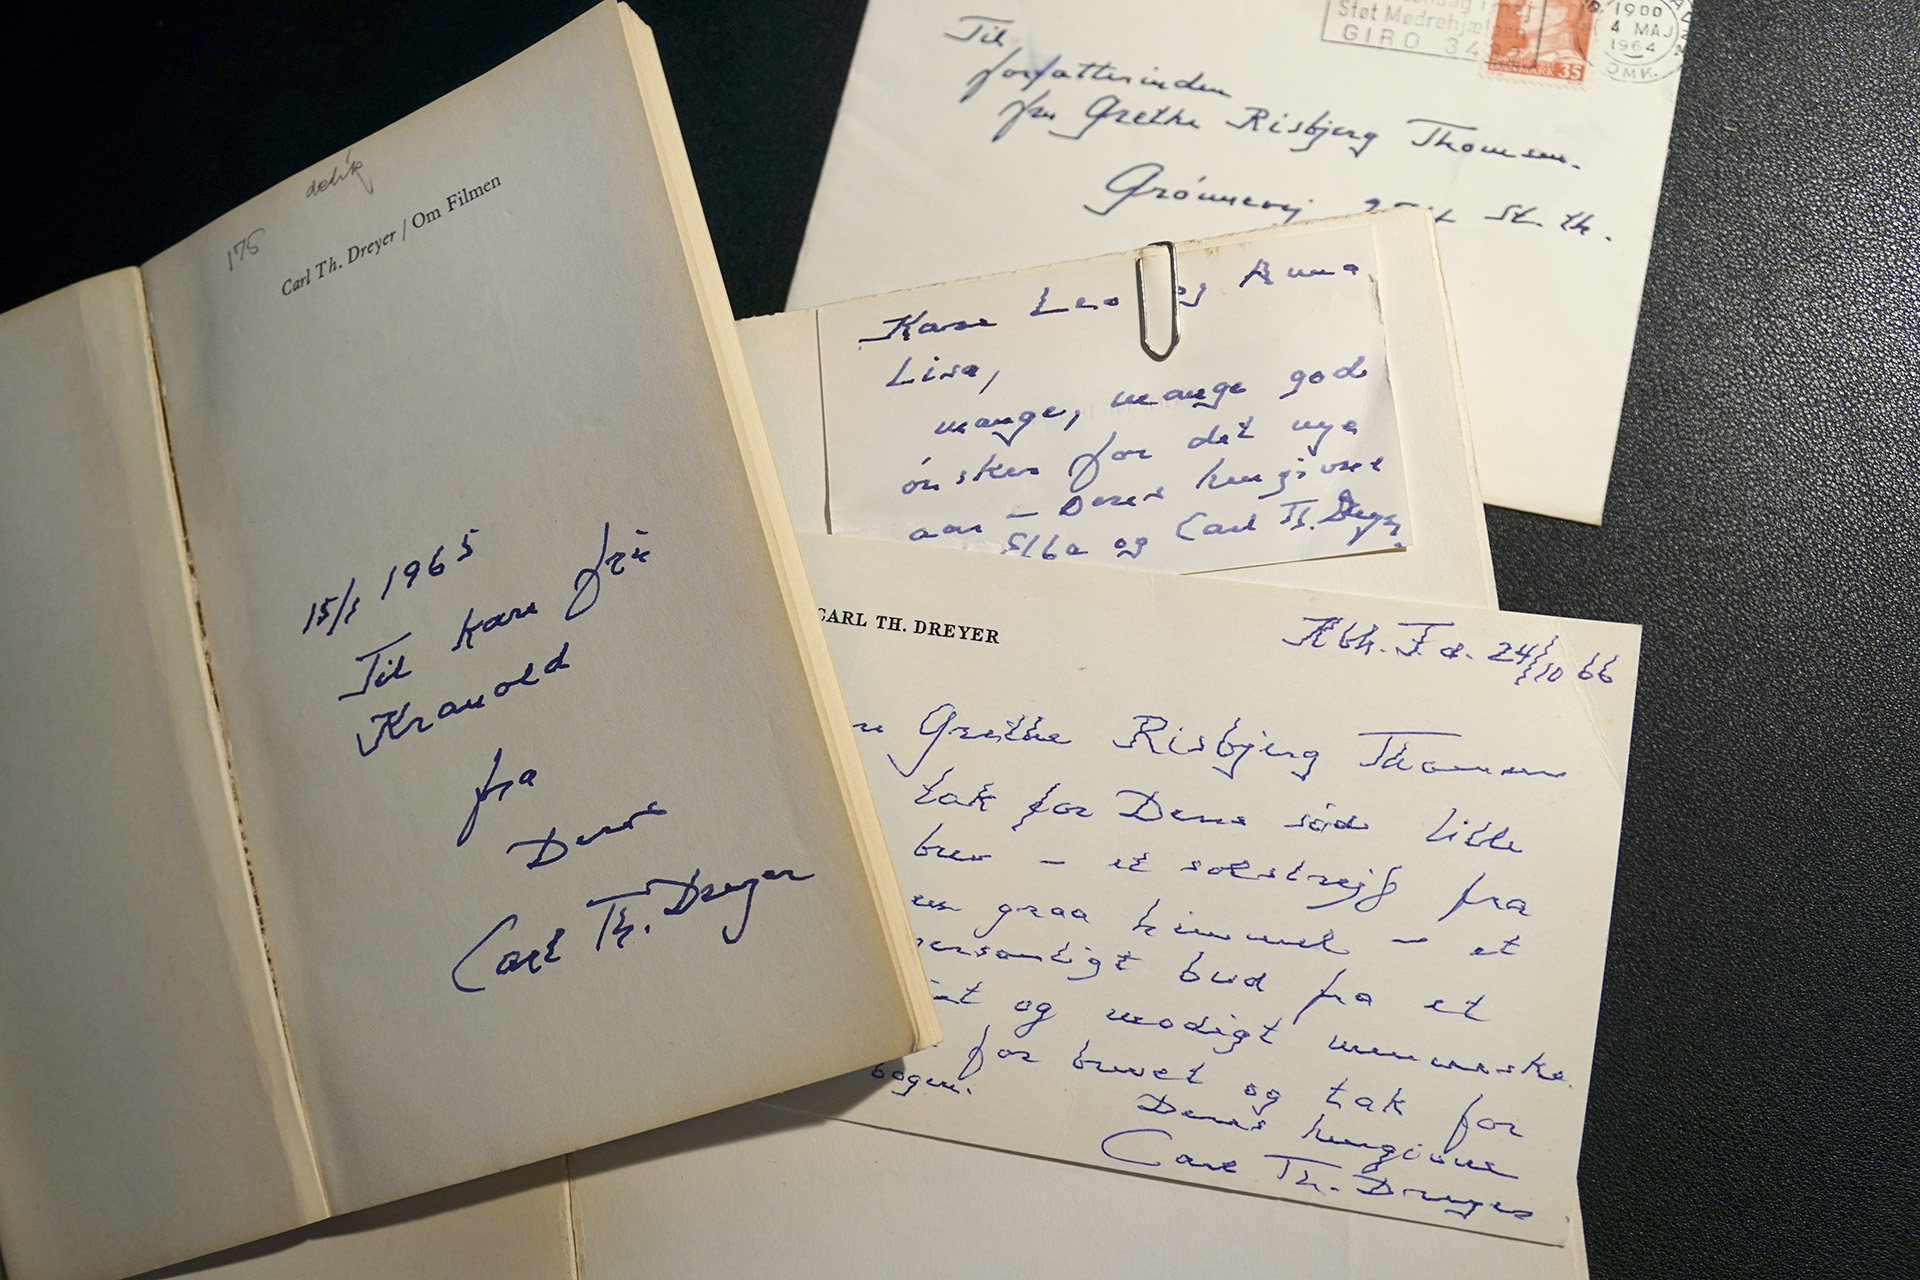 dedik
175
Carl Th. Dreyer / Om Filmen
15/1 1965
Til kære frü
Kranold
fra
Deres
Carl Th. Dreyer
Støt Mødrehjælpen
GIRO 34
1900
4 MAJ
1964
OMK.
DANMARK 35
Til
forfatterinden
fru Grethe Risbjerg Thomsen.
Grönnevej St. th.
Kære Leo og Anna
Lisa,
mange, mange gode
önsker for det nye
aar – Deres hengivne
Ebba og Carl Th. Dreyer.
CARL TH. DREYER
Kbh. F. d. 24/10 66
Grethe Risbjerg Thomsen
tak for Deres søde lille
brev – et solstrejf fra
en graa himmel – et
personligt bud fra et
og modigt menneske.
for brevet og tak for
bogen.
Deres hengivne
Carl Th. Dreyer